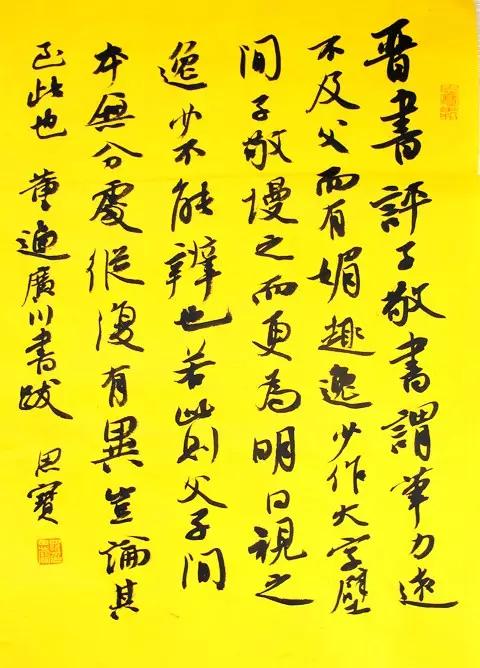 晉書評子敬書謂筆力遠
不及父而有媚趣逸少作大字壁
間子敬慢之而更為明日視之
逸少不能辨也若此則父子間
本無分處縱復有異豈論其
至此也 董逌廣川書跋 思寶